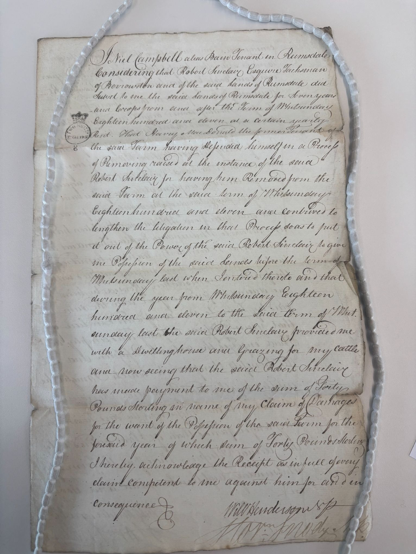 I Neil Campbell alias Bain Tenant in Rumsdale
Considering that Robert Sinclair Esquire Tacksman
of and of the said lands of Rumsdale did
to me the said lands of Rumsdale for years
and Crops from and after the Term of Whitsunday
Eighteen hundred and eleven at a certain yearly
Rent That the former Tenant of
the said Farm having defended himself in a Process
of Removing raised at the instance of the said
Robert Sinclair for having him Removed from the
said Farm at the said term of Whitsunday
Eighteen hundred and eleven and contrived to
lengthen the litigation in that Process so as to put
it out of the Power of the said Robert Sinclair to give
me Possession of the said Lands before the term of
Whitsunday last when I entered thereto and that
during the year from Whitsunday Eighteen
hundred and eleven to the said term of Whit
sunday last the said Robert Sinclair provided me
with a dwelling house and Grazing for my Cattle
and now seeing that the said Robert Sinclair
has made payment to me of the sum of Forty
Pounds Sterling in name of my Claim of Damages
for the want of the Possession of the said Farm for the
said year of which sum of Forty Pounds
I hereby acknowledge the Receipt as in full of every
claim competent to me against him for and in
consequence
Henderson